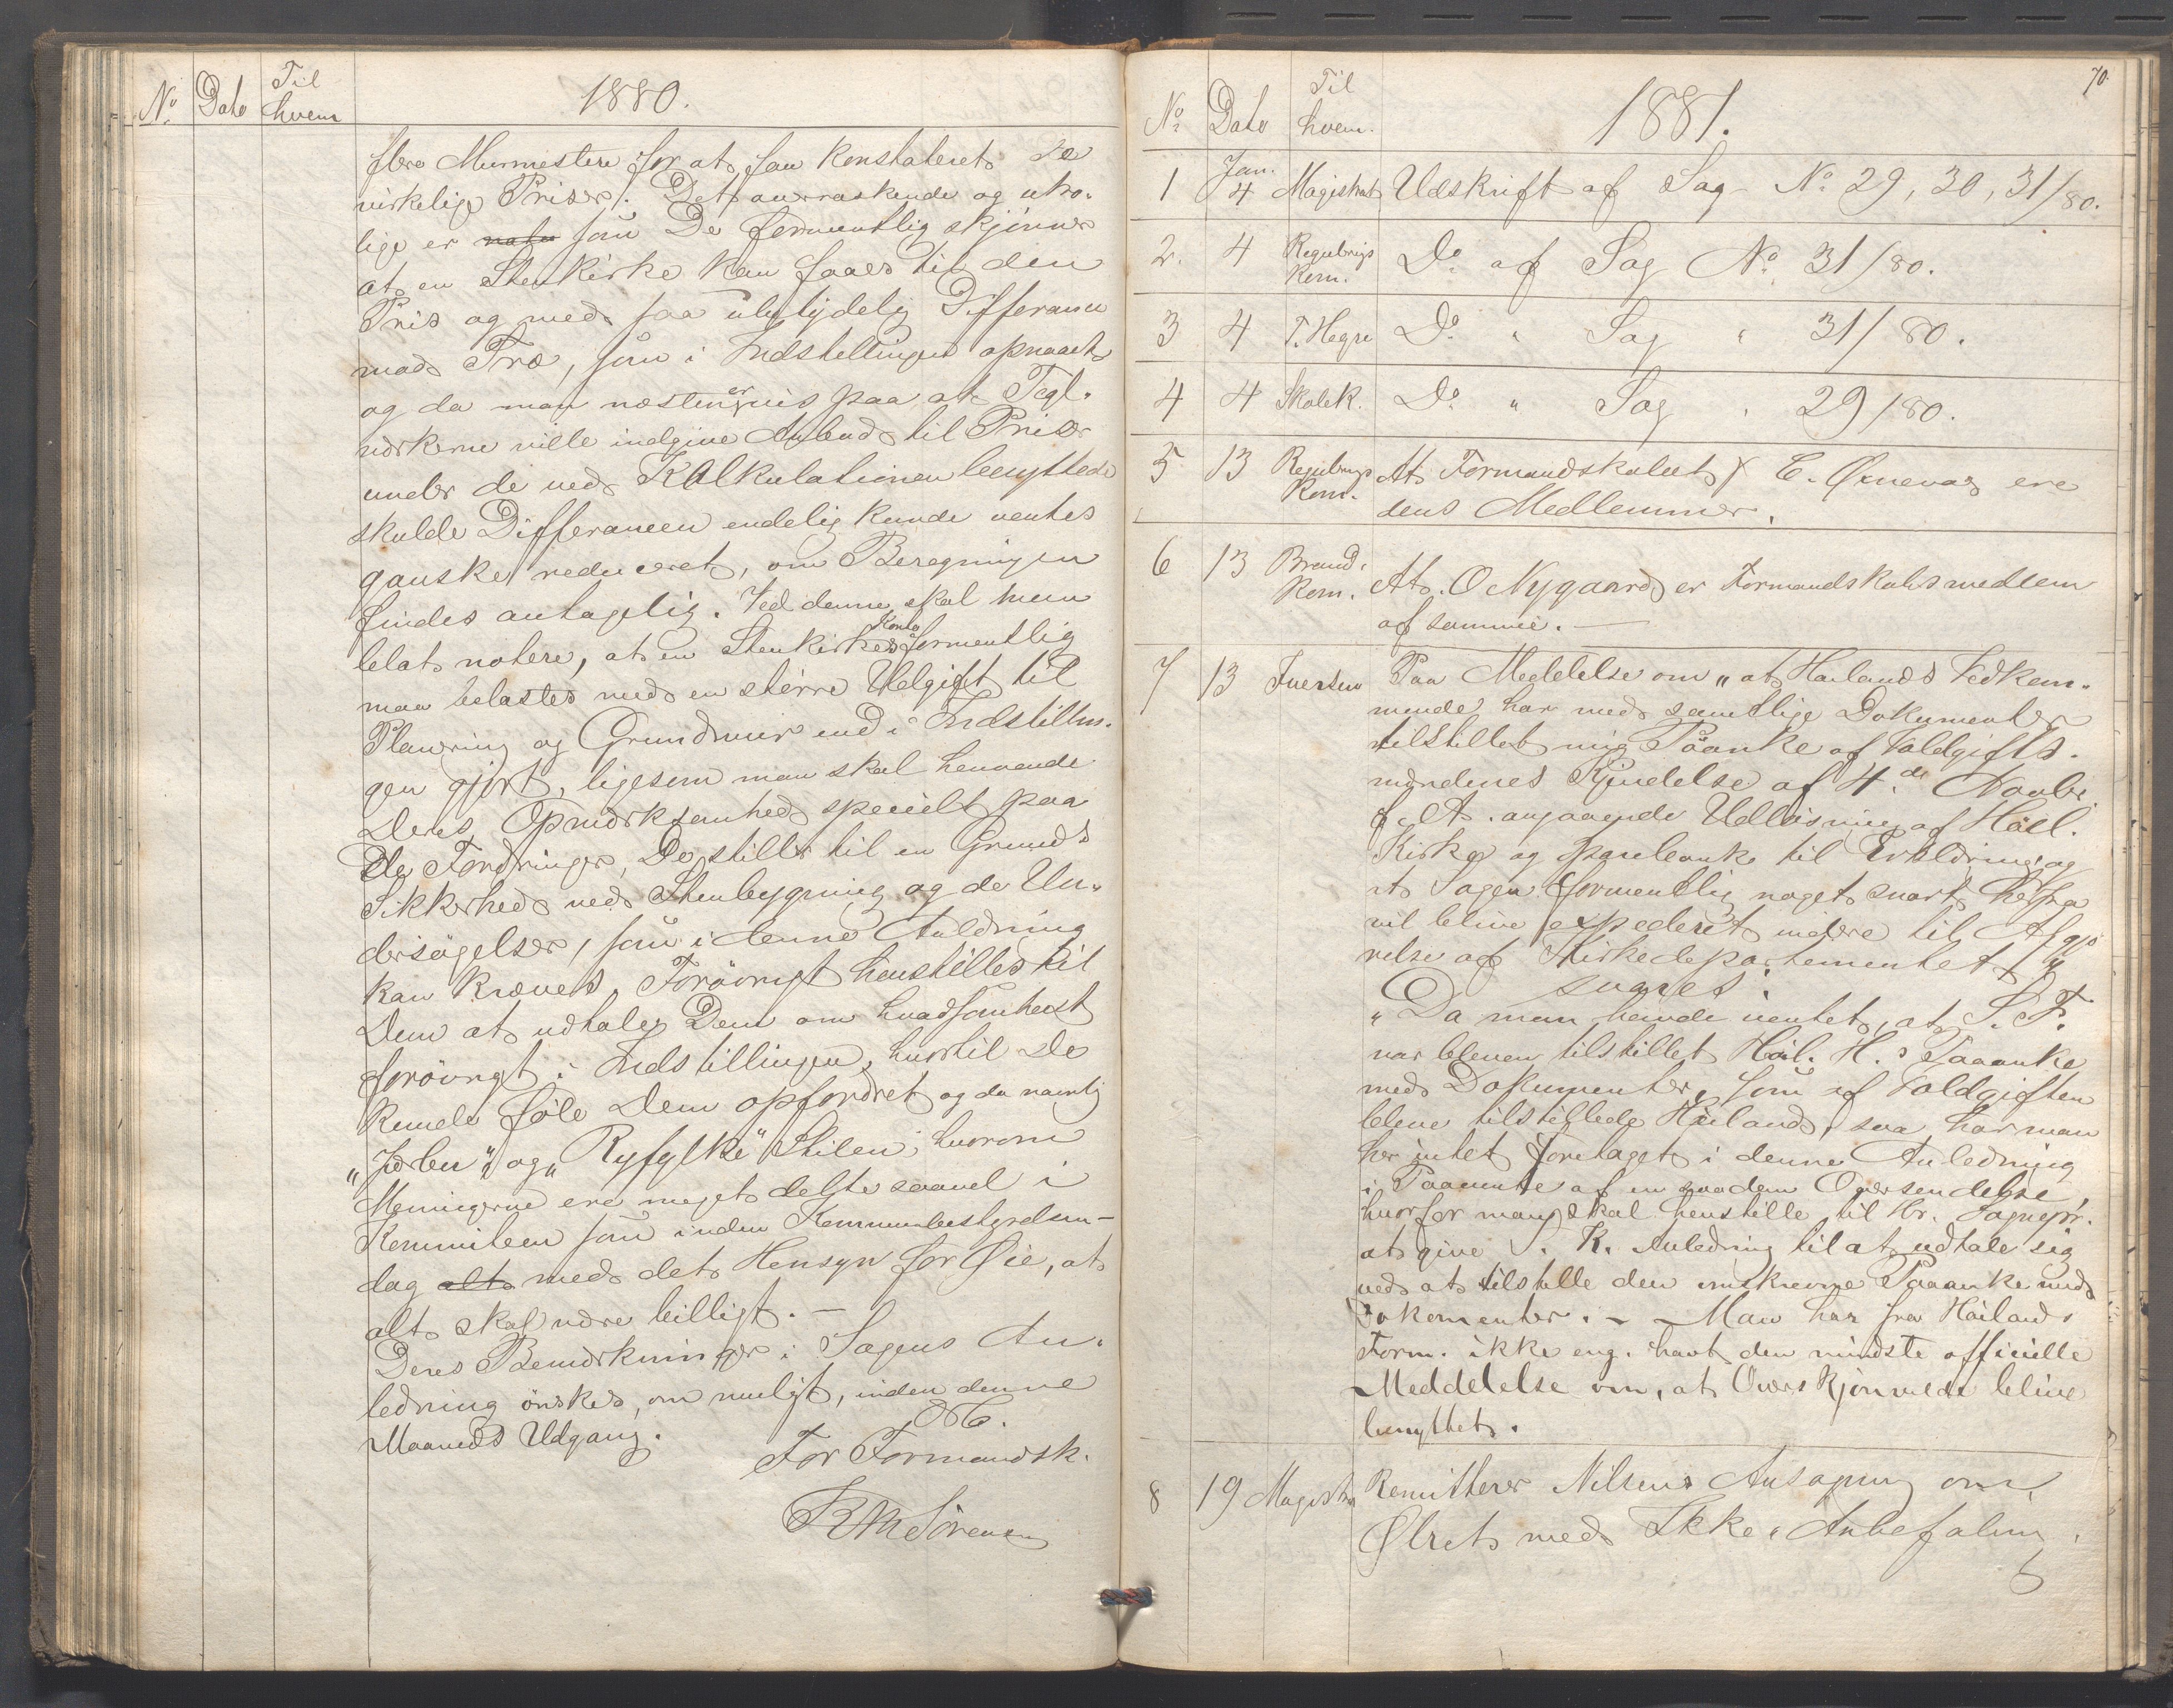 No. Dato Til hvem 1880.
flere Murmestere for at faa konstateret de
virkelige Priser. Det overraskende og utro-
lige er som De formentlig skjønner
at en Stenkirke kan faaes til den
Pris og med saa ubetydelig Differance
mod Træ, som i Indstillingen opnaaet
og da man næsten er vis paa at Tegl-
værkerne ville indgive Anbud til Priser
under de ved Kalkulationen benyttede
skulde Differancen endelig kunde ventes
ganske reduceret, om Beregningen
findes antagelig. Ved denne skal man
blot notere, at en Stenkirkes Konto formentlig
maa belastes med en större Udgift til
Planering og Grundmur end i Indstillin-
gen gjort, ligesom man skal henvende
Deres Opmærksomhed specielt paa
de Fordringer, De stiller til en Grunds
Sikkerhed ved Stenbygning og de Un-
dersögelser, som i denne Anledning
kan kræves. Forövrigt henstilles til
Dem at udtale Dem om hvadsomhelst
forövrigt i Indstillingen, hvortil De
kunde föle Dem opfordret og da navnlig
"Jæder" og "Ryfylke" Stilen, hvorom
Meningerne ere meget delte saavel i
Kommiteen som inden Kommunebestyrelsen
dog alt med det Hensyn for Øie, at
alt skal være billigt. —
Deres Bemærkninger i Sagens An-
ledning önskes, om muligt, inden denne
Maaneds Udgang.
For Formandsk.
R M Sörensen
70.
No. Dato Til hvem. 1881.
1 Jan. 4 Magistrat Udskrift af Sag No. 29, 30, 31/80.
2. 4 Regulrings Kom. Do. af Sag No. 31/80.
3 4 T. Hegre Do. " Sag " 31/80.
4 4 Skolek. Do. " Sag " 29/80.
5 13 Regulrings Kom. At Formandskabet & C. Ørnevag ere
dens Medlemmer.
6 13 Brand. Kom. At O Nygaard er Formandskabsmedlem
af samme. —
7 13 Iversen Paa Meddelelse om "at Hailands Vedkom-
mende har med samtlige Dokumenter
tilstillet mig Paanke af Voldgifts-
mændenes Kjendelse af 4de Novbr
f. A. angaaende Udlösning af Häil.
Kirke og paabank til Erklæring og
at Sagen formentlig noget snart herfra
vil blive expederet videre til Afgjö-
relse af Kirkedepartementet"
svaret:
"Da man havde ventet, at S. F.
var bleven tilstillet Häil. H.s Paaanke
med Dokumenter, som af Voldgiften
bleve tilstillede Häiland, saa har man
her intet foretaget i denne Anledning
i Paavente af en saadan Oversendelse,
hvorfor man skal henstille til Hr. Sognepr.
at give S. K. Anledning til at udtale sig
ved at tilstille den omskrevne Paaanke med
Dokumenter. — Man har fra Häilands
Form. ikke eng. havt den mindste officielle
Meddelelse om, at Overskjön vilde blive
benyttet.
8 19 Magistra Remitterer Nilsens Ansögning om
Ølret med Ikke-Anbefaling.